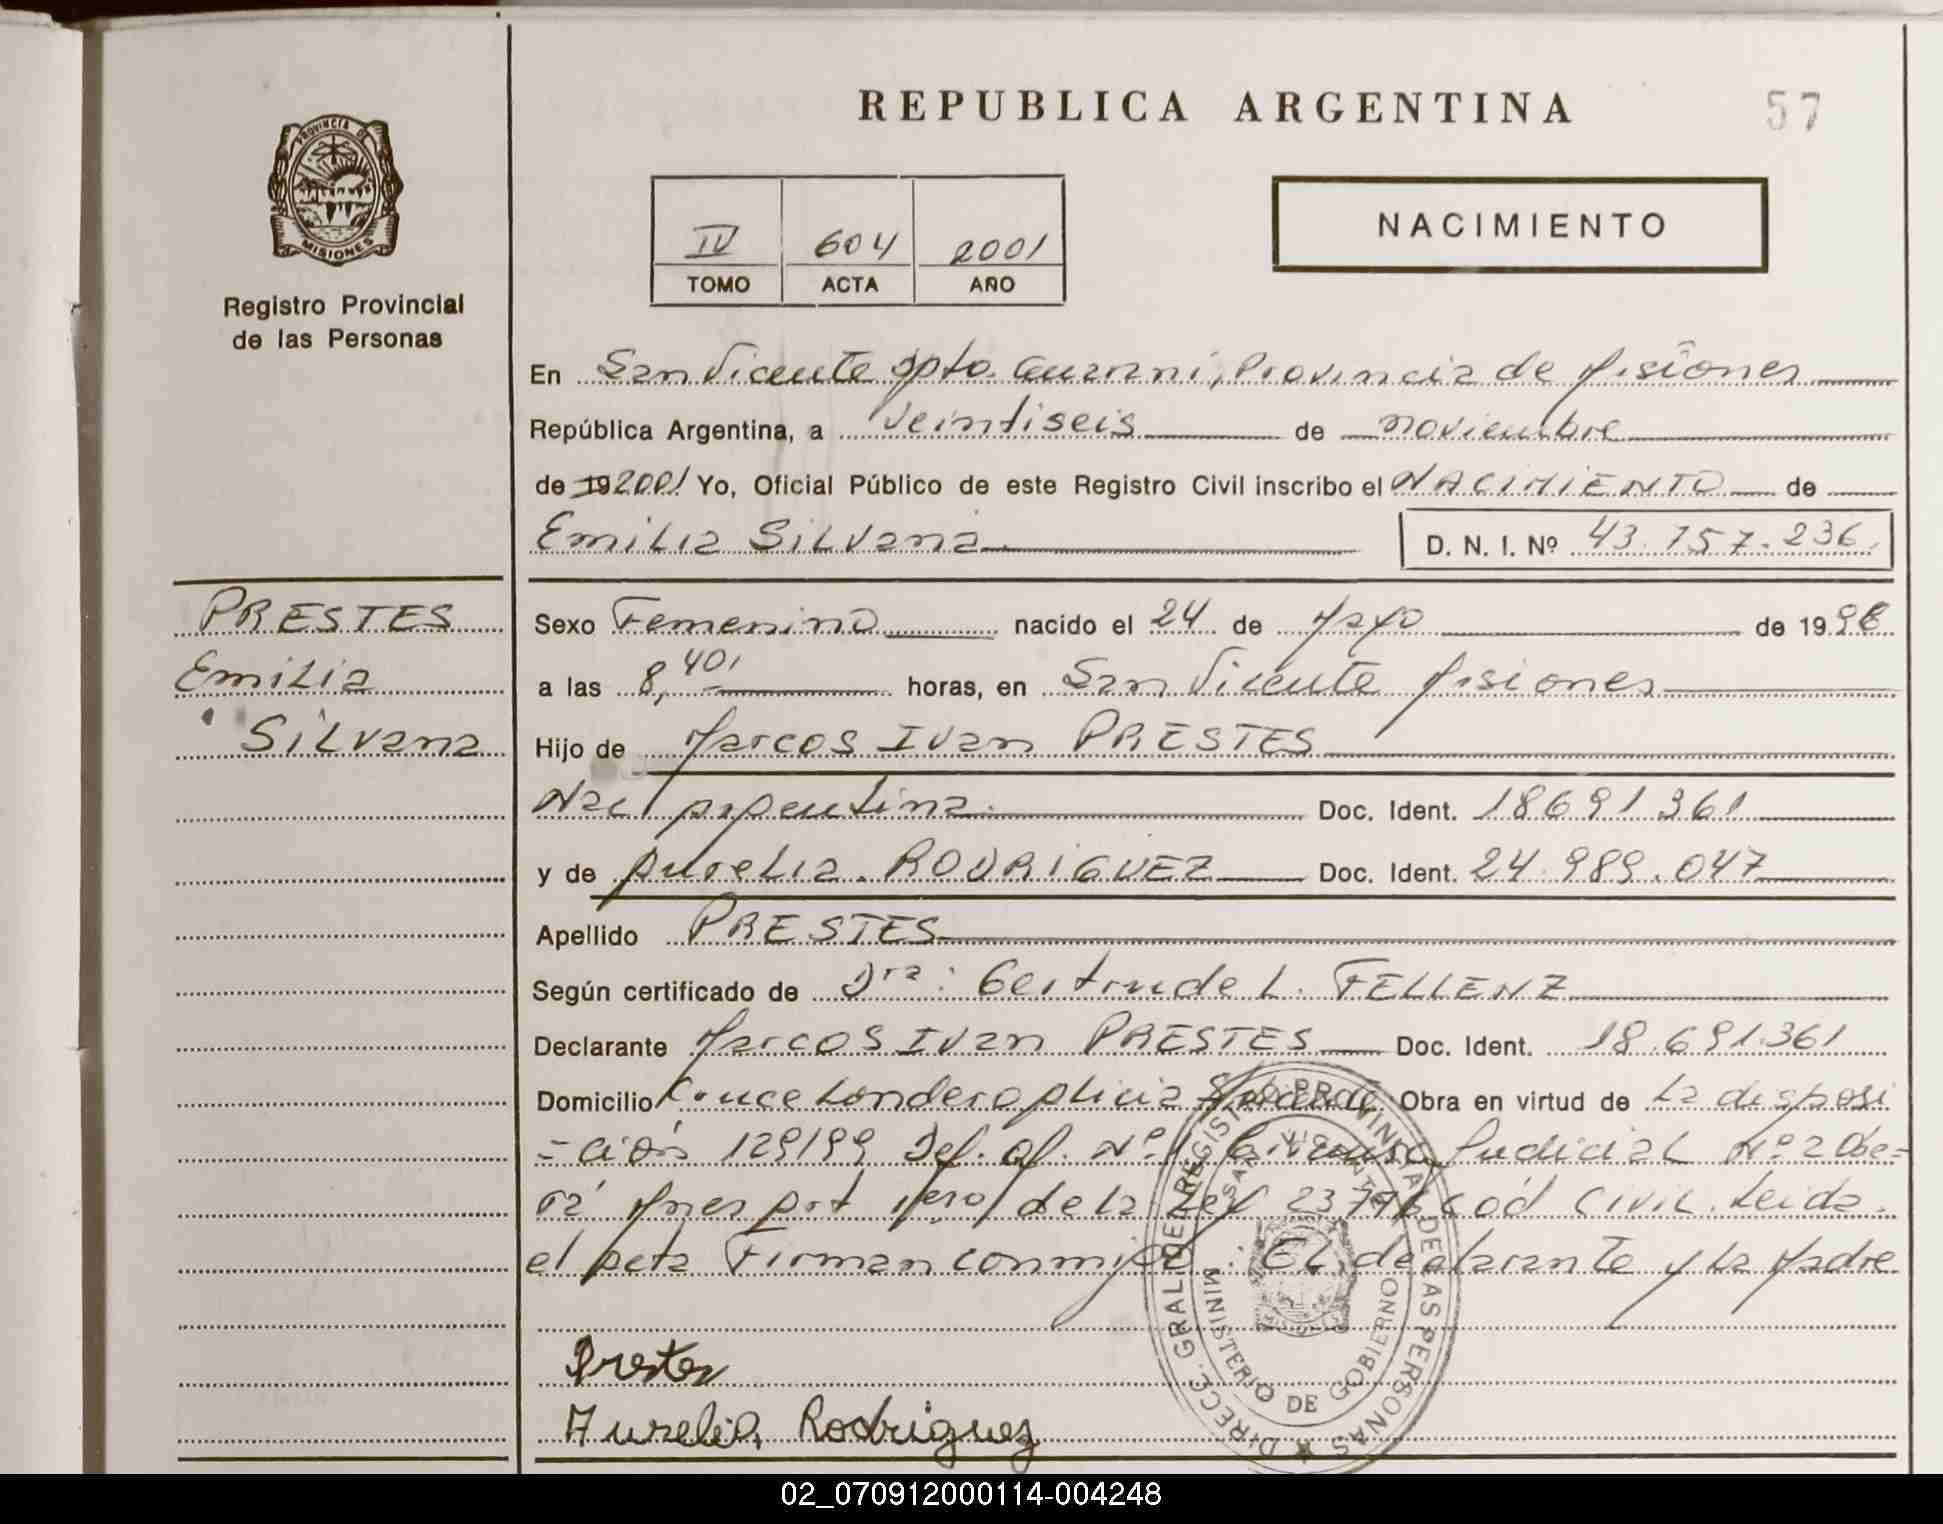 REPUBLICA ARGENTINA
57
PROVINCIA DE
MISIONES
Registro Provincial
de las Personas
IV 604 2001
TOMO ACTA AÑO
NACIMIENTO
En San Vicente Dpto. Guarani, Provincia de Misiones
República Argentina, a veintiseis de noviembre
de 19 2001 Yo, Oficial Público de este Registro Civil inscribo el NACIMIENTO de
Emilia Silvana D. N. I. Nº 43.757.236
PRESTES
Emilia
Silvana
Sexo Femenino nacido el 24 de Mayo de 19
a las 8,40 horas, en San Vicente Misiones
Hijo de Marcos Ivan PRESTES
Nac Argentina Doc. Ident. 18691361
y de Aurelia RODRIGUEZ Doc. Ident. 24.989.047
Apellido PRESTES
Según certificado de Dra: Gertrude L. FELLENZ
Declarante Marcos Ivan PRESTES Doc. Ident. 18.691.361
Domicilio Obra en virtud de la disposi
=ción 129/99 Def. of. Nº1 Judicial Nº2 Obe=
rá Mnes Art 1ero de la Ley Cód Civil. Leida
el Acta Firman conmigo: El declarante y la Madre
Prestes
Aurelia Rodriguez
DIRECC. GRAL. DEL REGISTRO PROVINCIAL DE LAS PERSONAS
SAN VICENTE
MINISTERIO DE GOBIERNO
02_070912000114-004248